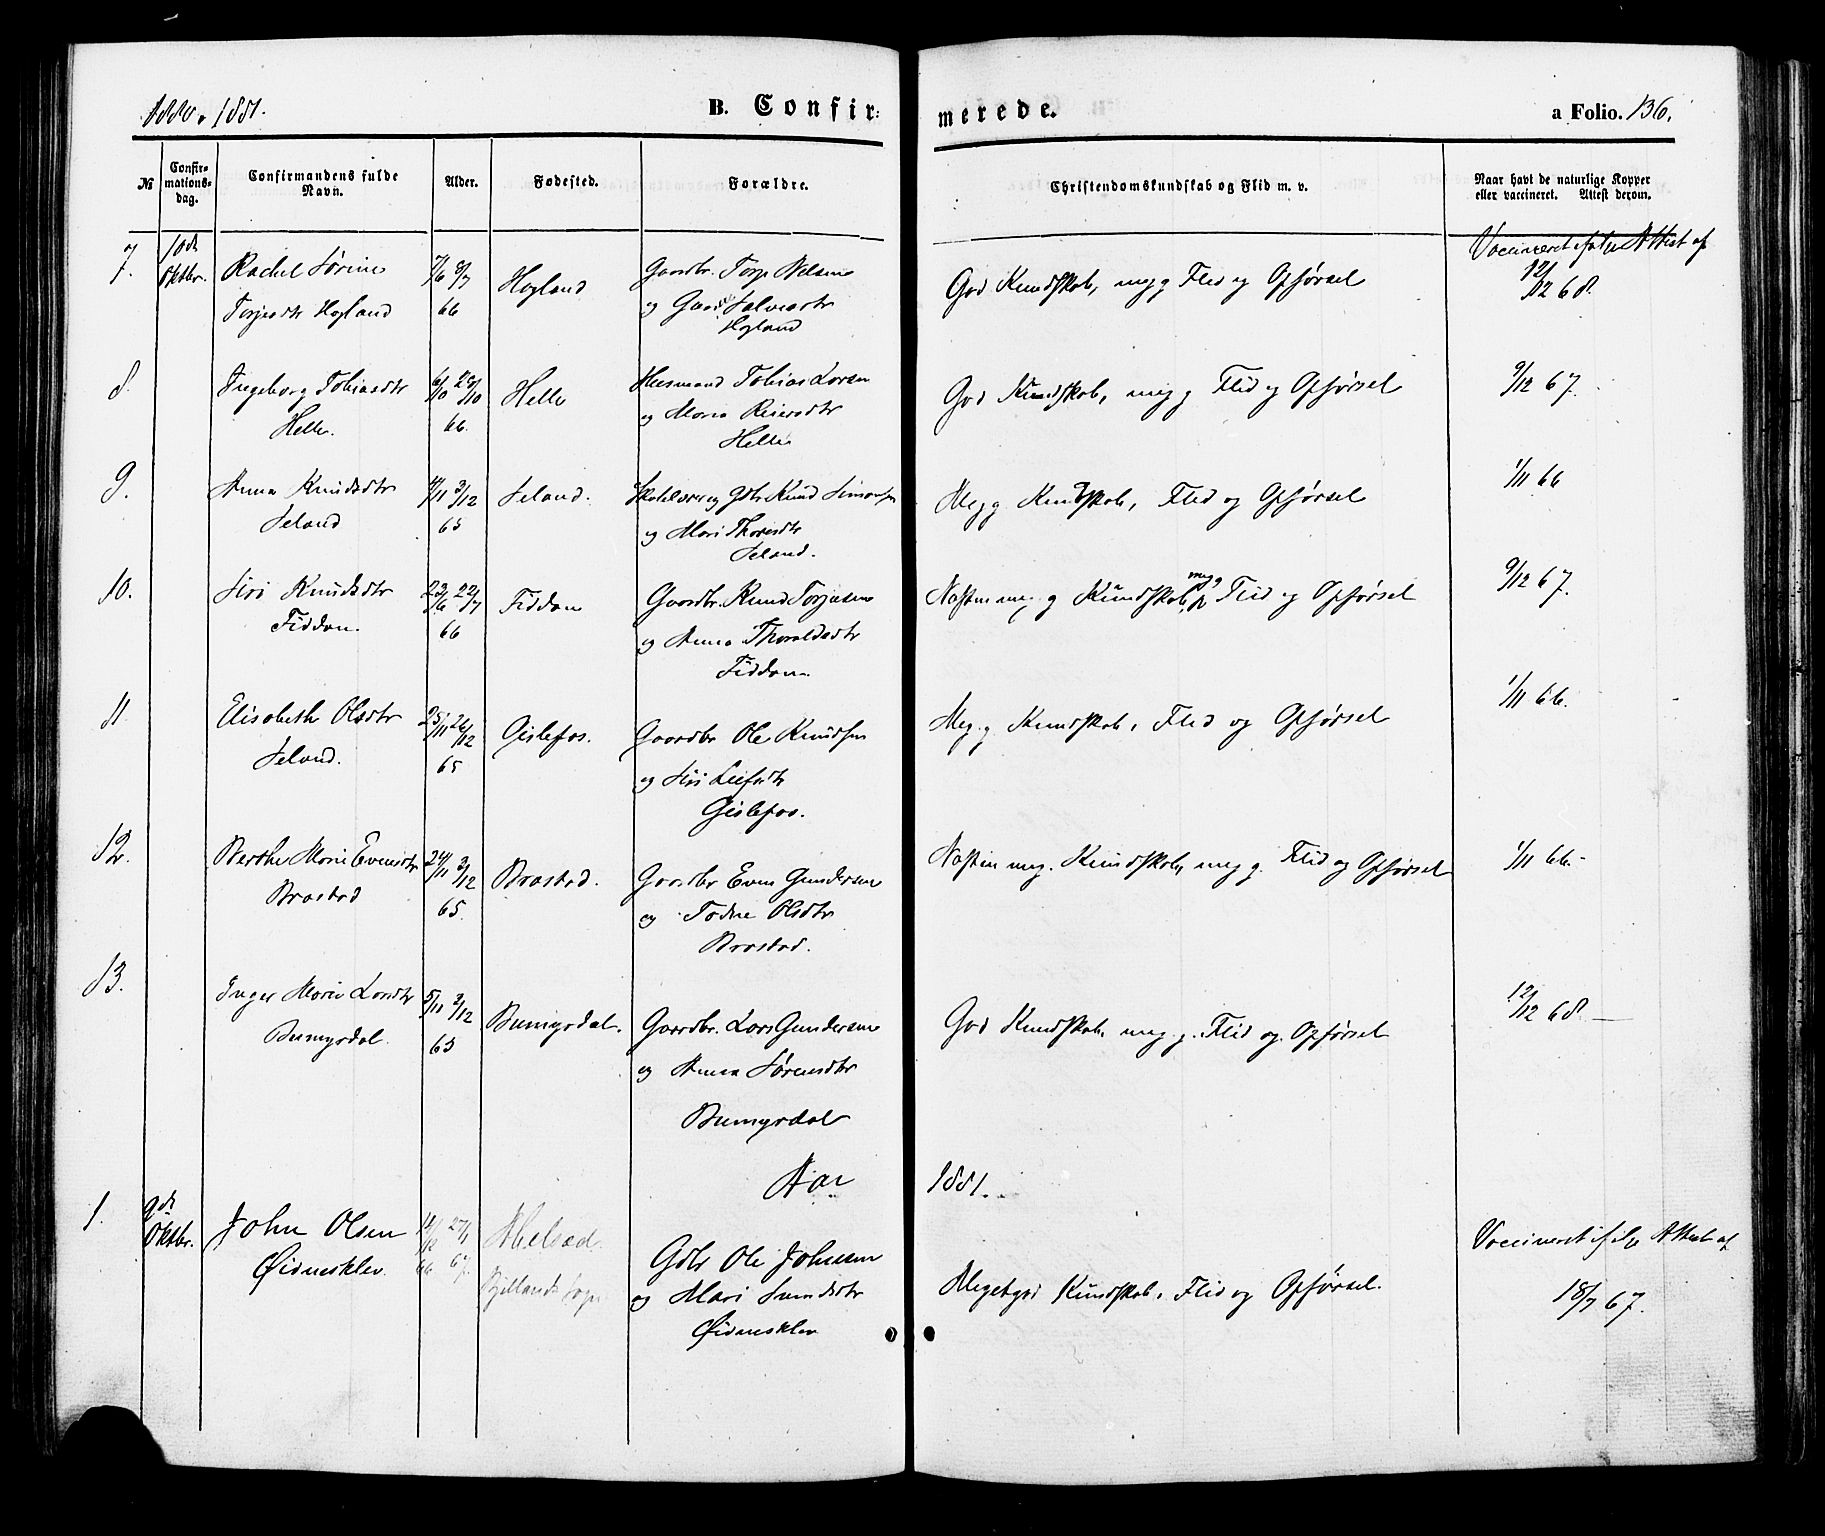 1880. 1881.
B. Confir-
merede.
a Folio. 136.
№
Confir-
mations-
dag.
Confirmandens fulde
Navn.
Alder.
Fødested.
Forældre.
Christendomskundskab og Flid m. v.
Naar havt de naturlige Kopper
eller vaccineret. Attest derom.
7. 10de Oktbr. Rachel Sørine
Torjesdtr Hogland
66
Hogland
Gaardbr. Torje Nelsen
og Salvesdtr
Hogland
God Kundskab, meg g Flid og Opførsel
Vaccineret ifølge Attest af
12/12 68.
8. Ingeborg Tobiasdtr
Helle.
6/10 28/10
66.
Helle
Husmand Tobias Larsen
og Maria Reiersdtr
Helle
God Kundskab, meg g Flid og Opførsel
9/12 67.
9. Anna Knudsdtr
Seland
3/12
65
Seland.
Skolelærer og Gbr Knud Simonsen
og Mari Thoresdtr
Seland.
Meg g Kundskab, Flid og Opførsel
1/11 66
10. Siri Knudsdtr
Fiddan.
23/6 22/7
66
Fiddan
Gaardbr. Knud Torjesen
og Anna Thoraldsdtr
Fiddan.
Næsten meg. g Kundskab, meg g Flid og Opførsel
9/12 67.
11. Elisabeth Olsdtr
Seland.
25/11 26/12
65
Gislefos.
Gaardbr Ole Knudsen
og Siri Leifsdtr
Gislefos.
Meg. g. Kundskab, Flid og Opførsel
1/11 66.
12. Berthe Marie Evensdtr
Brastad
24/11 3/12
65.
Brastad.
Gaardbr Even Gundersen
og Todne Olsdtr
Brastad.
Næsten meg. Kundskab, meg g. Flid og Opførsel
1/11 66.
13. Inger Marie Larsdtr
Bumyrdal.
5/11 3/12
65
Bumyrdal.
Gaardbr. Lars Gundersen
og Anna Sørensdtr
Bumyrdal
God Kundskab. meg. g. Flid og Opførsel
12/12 68.
Aar 1881.
1. 9de Oktbr. John Olsen
Øidnesklev.
27/1
66 67.
Bjellands Sogn
Gdbr Ole Johnsen
og Mari Svendsdtr
Øidnesklev
Megetgod Kundskab, Flid og Opførsel.
Vaccineret ifølge Attest af
18/7 67.